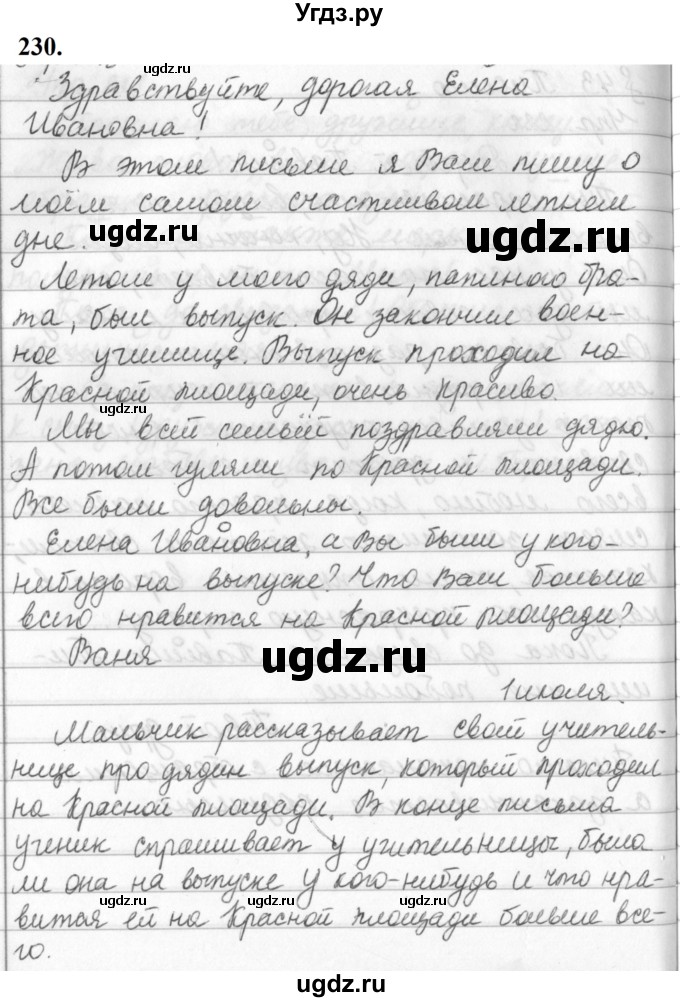 Угдз.ру
230.
Здравствуйте, дорогая Елена
Ивановна!
В этом письме я Вам пишу о
моём самом счастливом летнем
дне.
ugdz.ru
ugdz.ru
Летом у моего дяди, папиного бра-
та, был выпуск. Он закончил воен-
ное училище. Выпуск проходил на
Красной площади, очень красиво.
Мы всей семьёй поздравляли дядю.
А потом гуляли по Красной площади.
Все были довольны.
Елена Ивановна, а Вы были у кого-
нибудь на выпуске? Что Вам больше
всего нравится на Красной площади?
Ваня
ugdz.ru
1 июля.
Мальчик рассказывает своей учитель-
нице про дядин выпуск, который проходил
на Красной площади. В конце письма
ученик спрашивает у учительницы, была
ли она на выпуске у кого-нибудь и что нра-
вится ей на Красной площади больше все-
го.
ugdz.ru